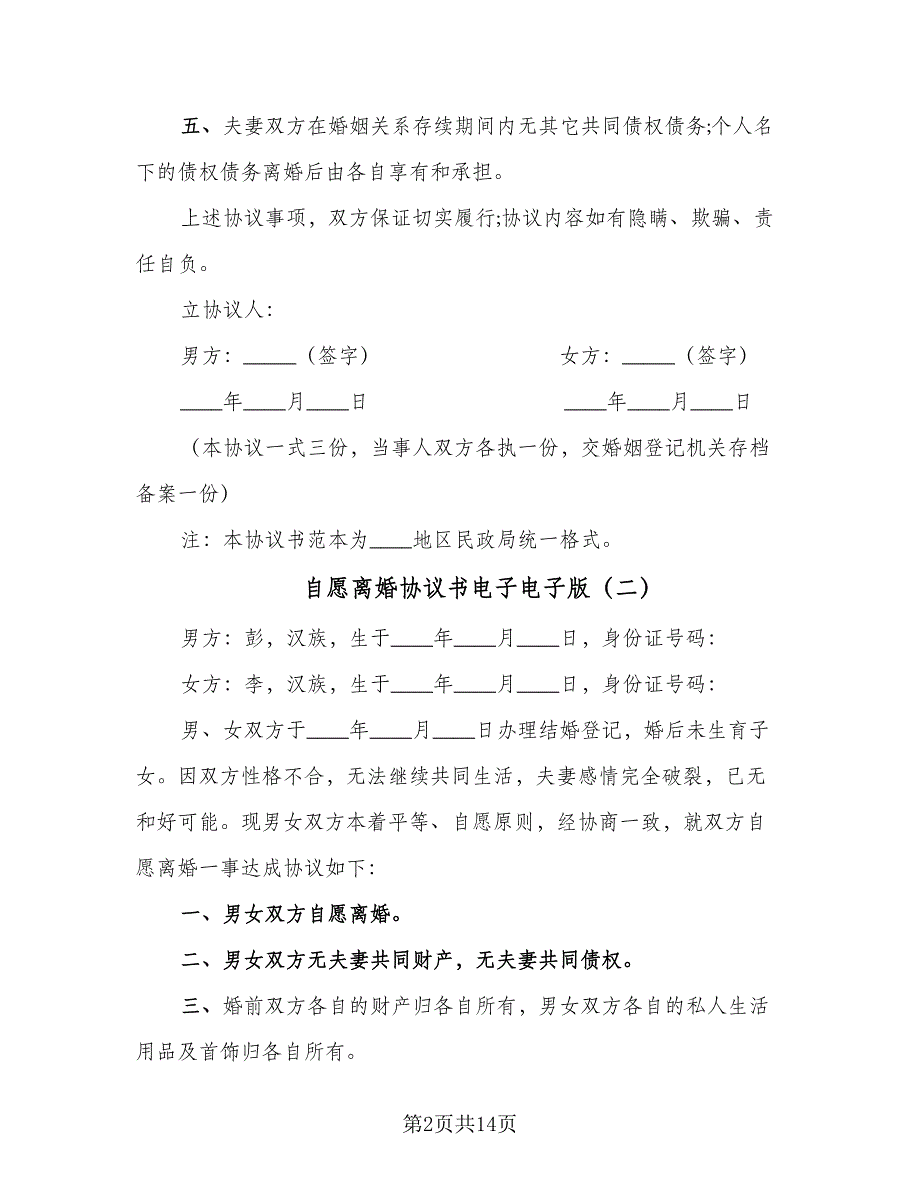 五、夫妻双方在婚姻关系存续期间内无其它共同债权债务;个人名
下的债权债务离婚后由各自享有和承担。
上述协议事项，双方保证切实履行;协议内容如有隐瞒、欺骗、责
任自负。
立协议人：
男方：_____（签字） 女方：_____（签字）
____年____月____日 ____年____月____日
（本协议一式三份，当事人双方各执一份，交婚姻登记机关存档
备案一份）
注：本协议书范本为____地区民政局统一格式。
自愿离婚协议书电子电子版（二）
男方：彭，汉族，生于____年____月____日，身份证号码：
女方：李，汉族，生于____年____月____日，身份证号码：
男、女双方于____年____月____日办理结婚登记，婚后未生育子
女。因双方性格不合，无法继续共同生活，夫妻感情完全破裂，已无
和好可能。现男女双方本着平等、自愿原则，经协商一致，就双方自
愿离婚一事达成协议如下：
一、男女双方自愿离婚。
二、男女双方无夫妻共同财产，无夫妻共同债权。
三、婚前双方各自的财产归各自所有，男女双方各自的私人生活
用品及首饰归各自所有。
第2页共14页